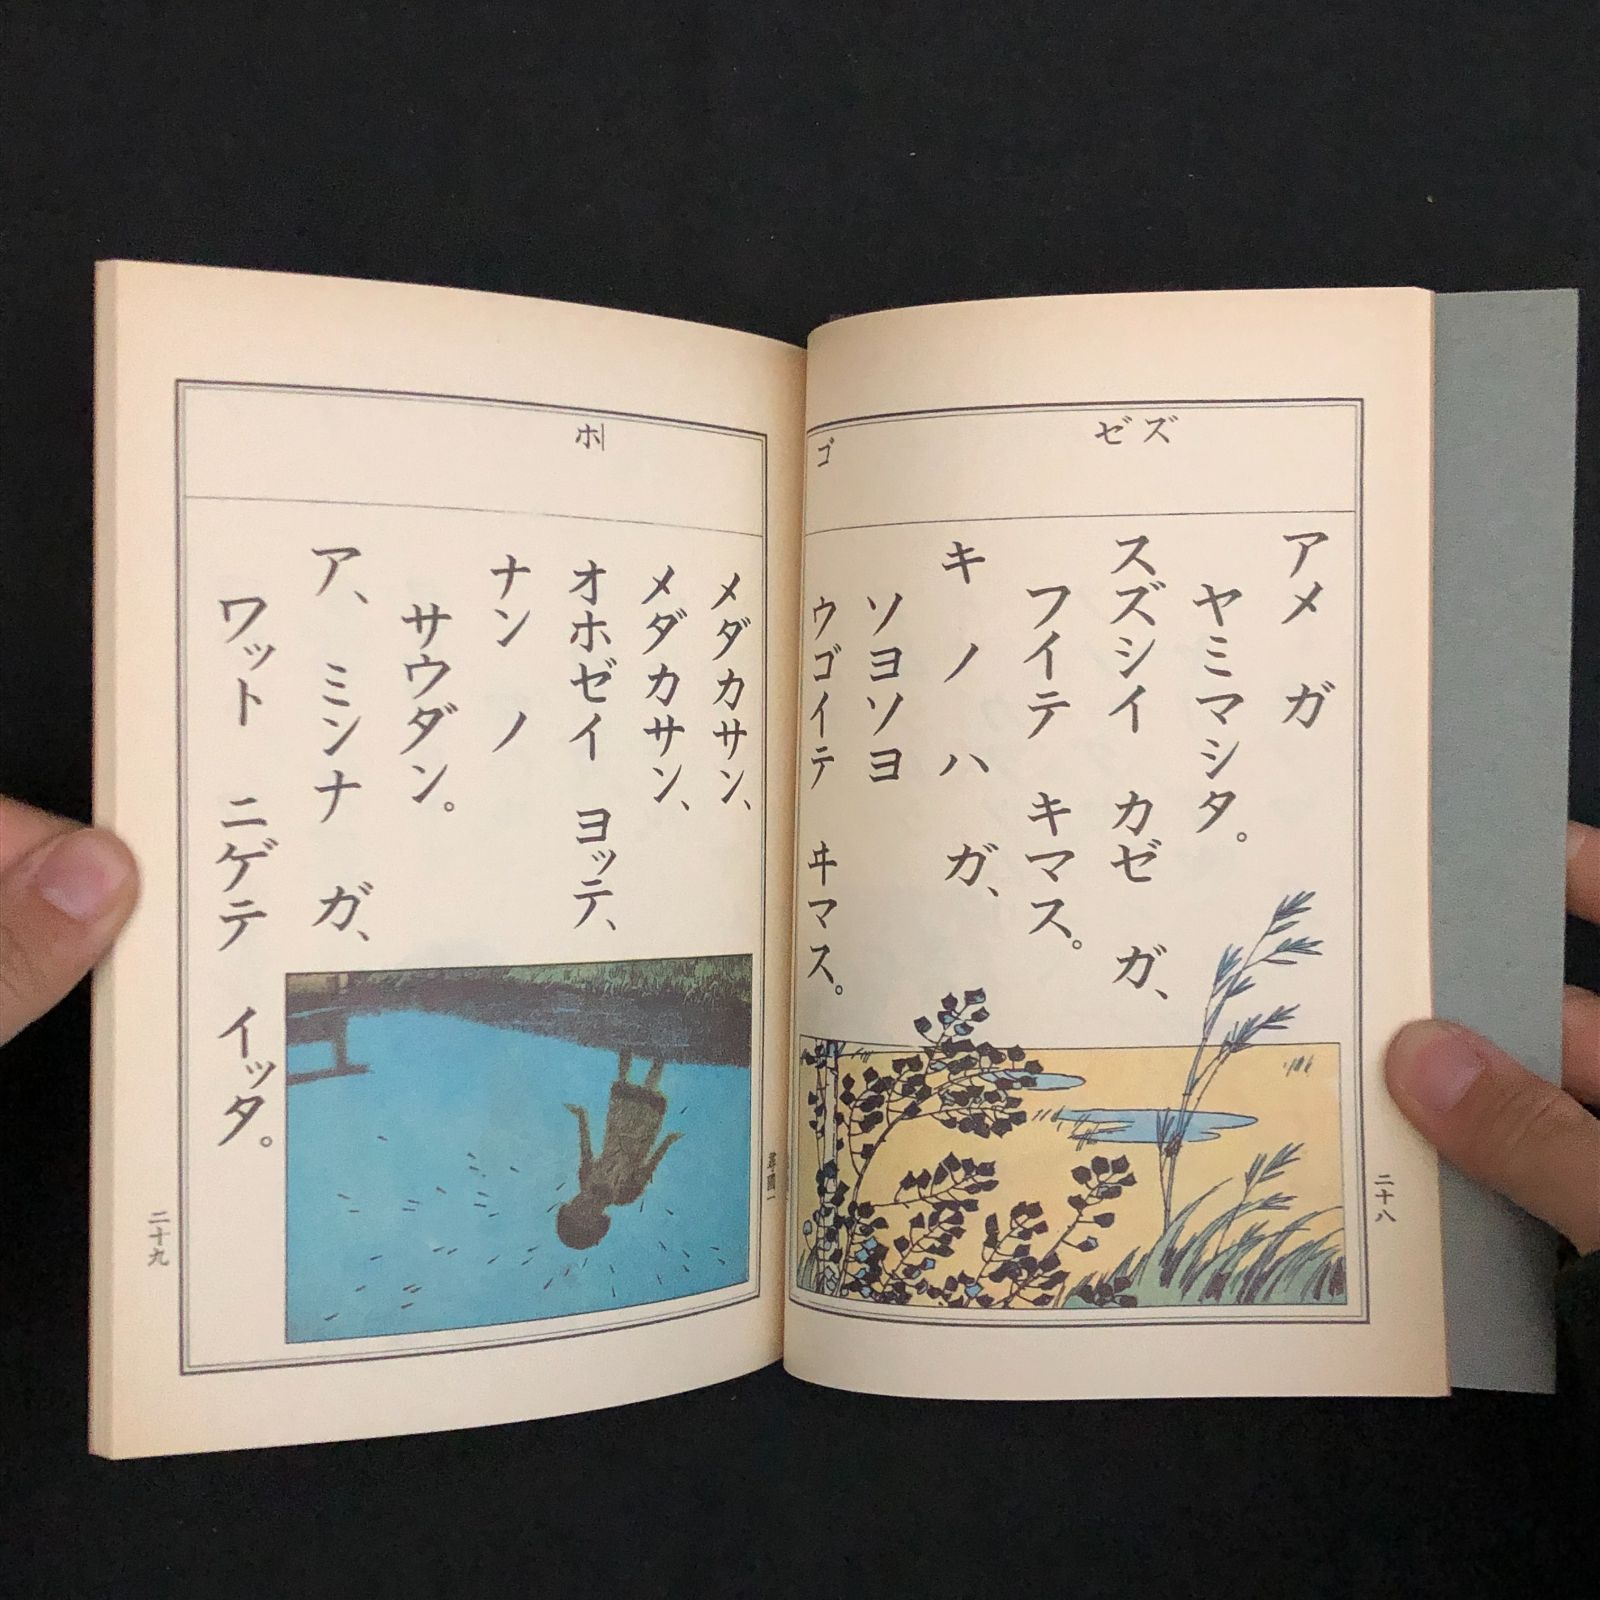 ズ
ゼ
アメ ガ
ヤミマシタ。
スズシイ カゼ ガ、
フイテ キマス。
キ ノ ハ ガ、
ソヨソヨ
ウゴイテ ヰマス。
二十八
ゴ
ホ
メダカサン、
メダカサン、
オホゼイ ヨッテ、
ナン ノ
サウダン。
ア、 ミンナ ガ、
ワット ニゲテ イッタ。
二十九